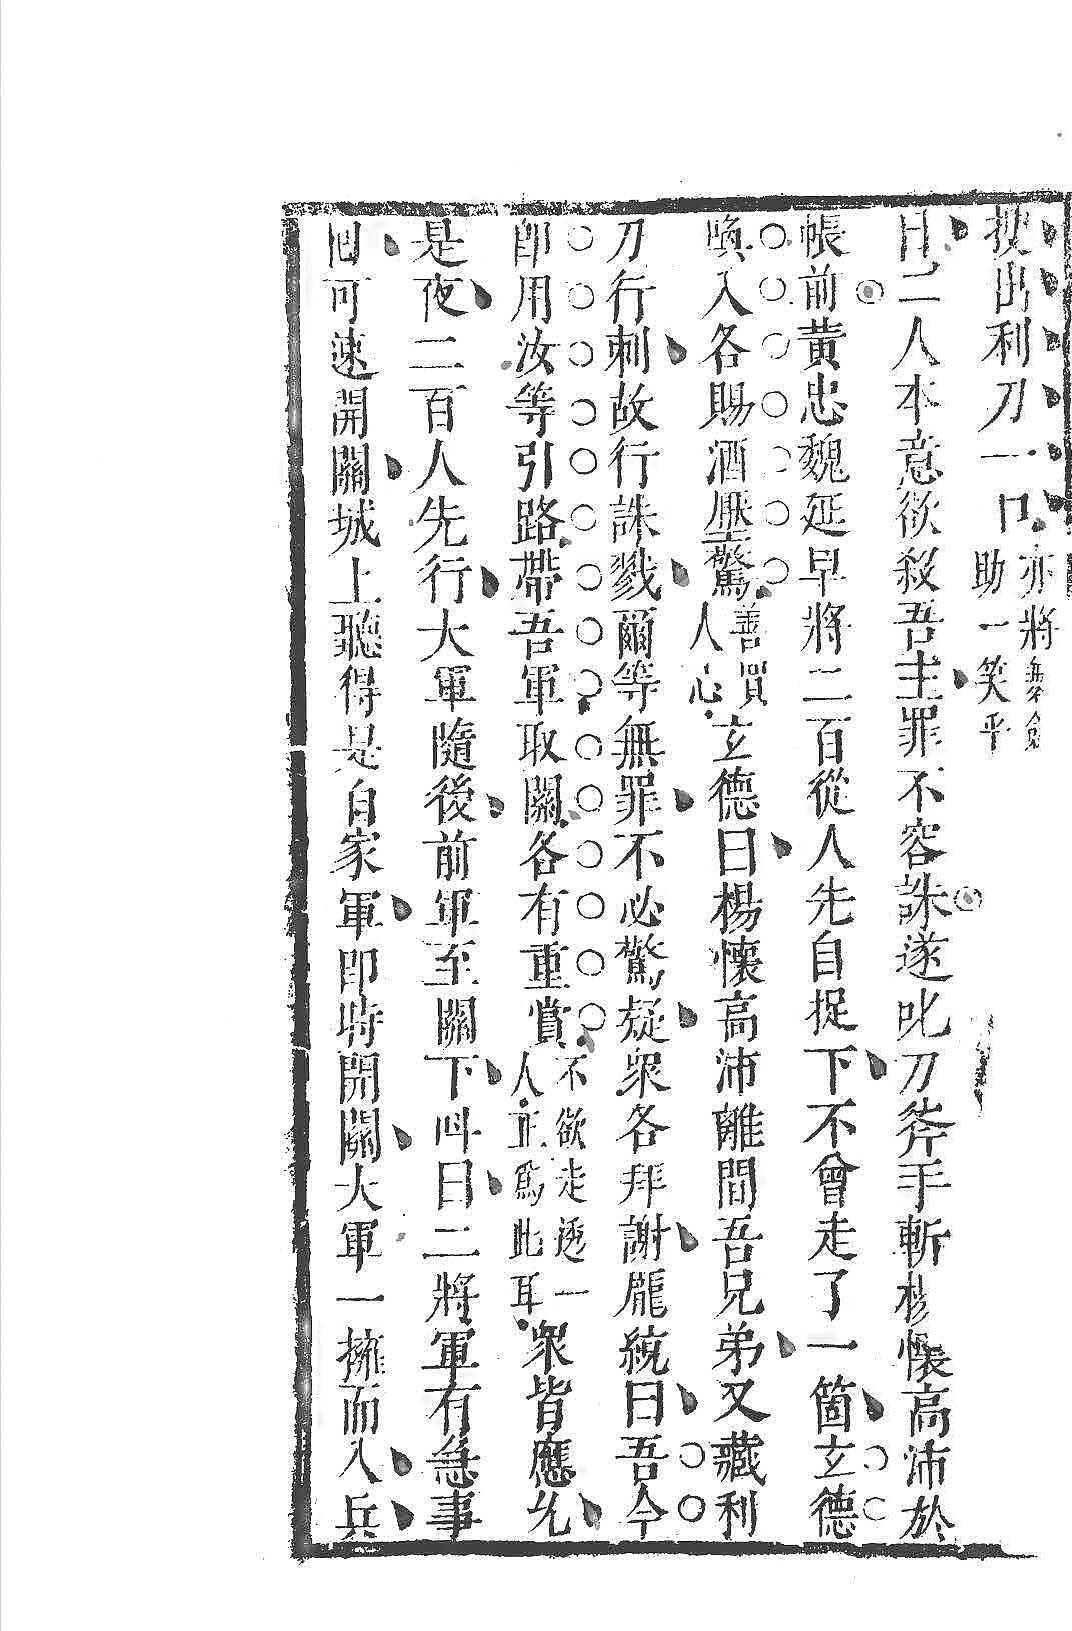 搜出利刀一口亦將無劍助一笑乎
曰二人本意欲殺吾主罪不容誅遂叱刀斧手斬楊懷高沛於
帳前黄忠魏延早將二百從人先自捉下不曾走了一箇玄德
喚入各賜酒壓驚善買人心玄德曰楊懷高沛離間吾兄弟又藏利
刀行刺故行誅戮爾等無罪不必驚疑衆各拜謝龐統曰吾今
即用汝等引路帶吾軍取關各有重賞不欲走透一人正爲此耳衆皆應允
是夜二百人先行大軍隨後前軍至關下呌曰二將軍有急事
回可速開關城上聽得是自家軍即時開關大軍一擁而入兵